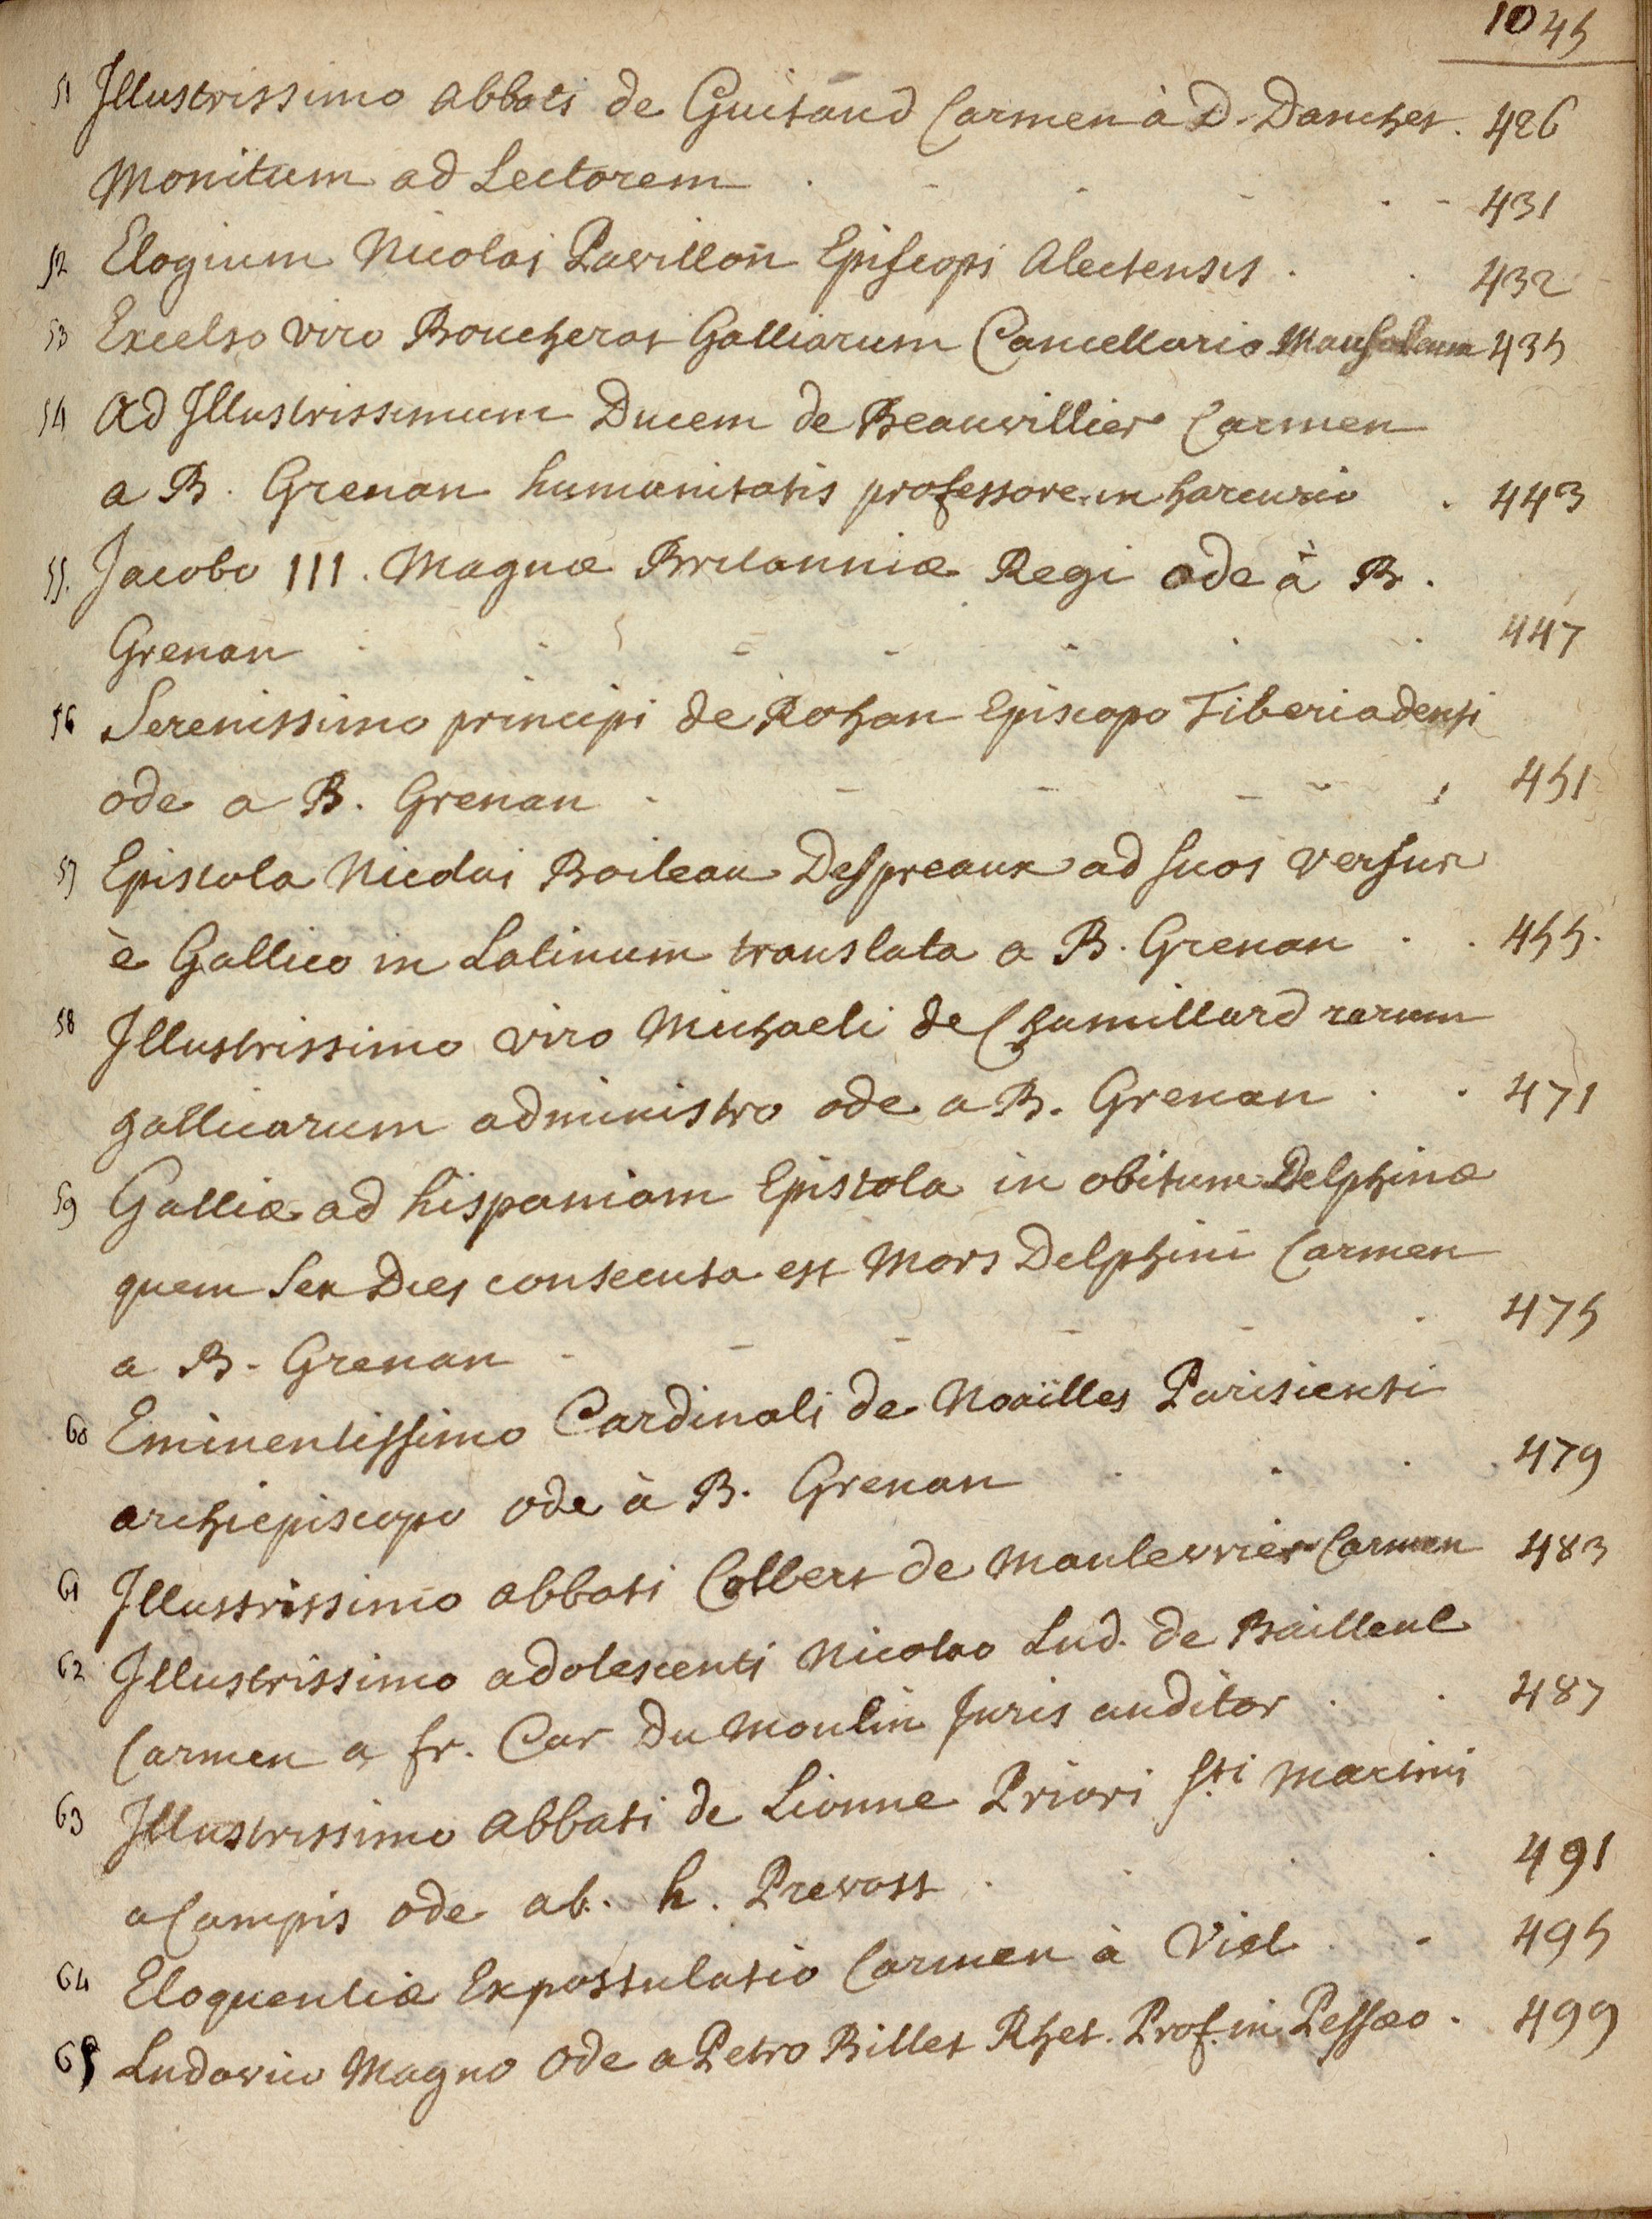 1045
51 Illustrissimo abbati de Guitaud Carmen à D. Danchet. 426
Monitum ad Lectorem . - - - . - 431
52 Elogium Nicolai Pavillon Episcopi Alectensis . . 432
53 Excelso viro Boucherat Galliarum Cancellario Mausoleum 435
54 Ad Illustrissimum Ducem de Beauvillier Carmen
a B. Grenan humanitatis professore in harcurio . 443
55. Jacobo III. Magnæ Britanniæ Regi ode à B.
Grenan . . - - . . . 447
56 Serenissimo principi de Rohan Episcopo Tiberiadensi
ode a B. Grenan - - - - - . 451
57 Epistola Nicolai Boileau Despreaux ad suos versus
è Gallico in Latinum translata a B. Grenan . . 455.
58 Illustrissimo viro Michaeli de Chamillard rerum
gallicarum administro ode a B. Grenan . . 471
59 Galliæ ad hispaniam Epistola in obitum Delphinæ
quem sex Dies consecuta est Mors Delphini Carmen
a B. Grenan - - - - - . 475
60 Eminentissimo Cardinali de Noaïlles Parisiensi
archiepiscopo ode à B. Grenan . . . . 479
61 Illustrissimo abbati Colbert de Maulevrier Carmen 483
62 Illustrissimo adolescenti Nicolao Lud. de Bailleul
Carmen a fr. Car Du Moulin Juris auditor . . 487
63 Illustrissimo abbati de Lionne Priori Sti Martini
a Campis ode ab. h. Prevost . . . . 491
64 Eloquentiæ Expostulatio Carmen à Viel . - 495
65 Ludovico Magno Ode a Petro Billet Rhet. Prof. in Pessæo . 499